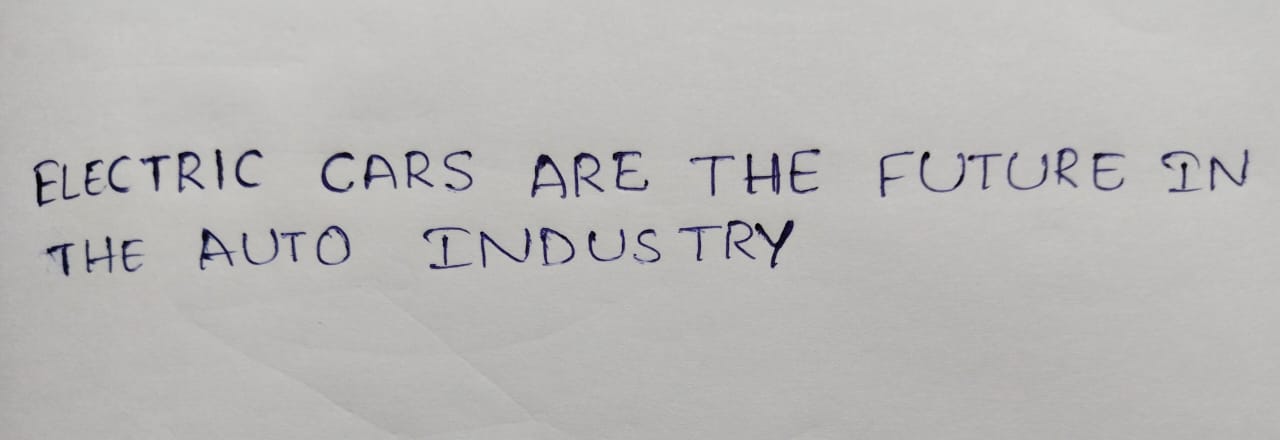 ELECTRIC CARS ARE THE FUTURE IN
THE AUTO INDUSTRY